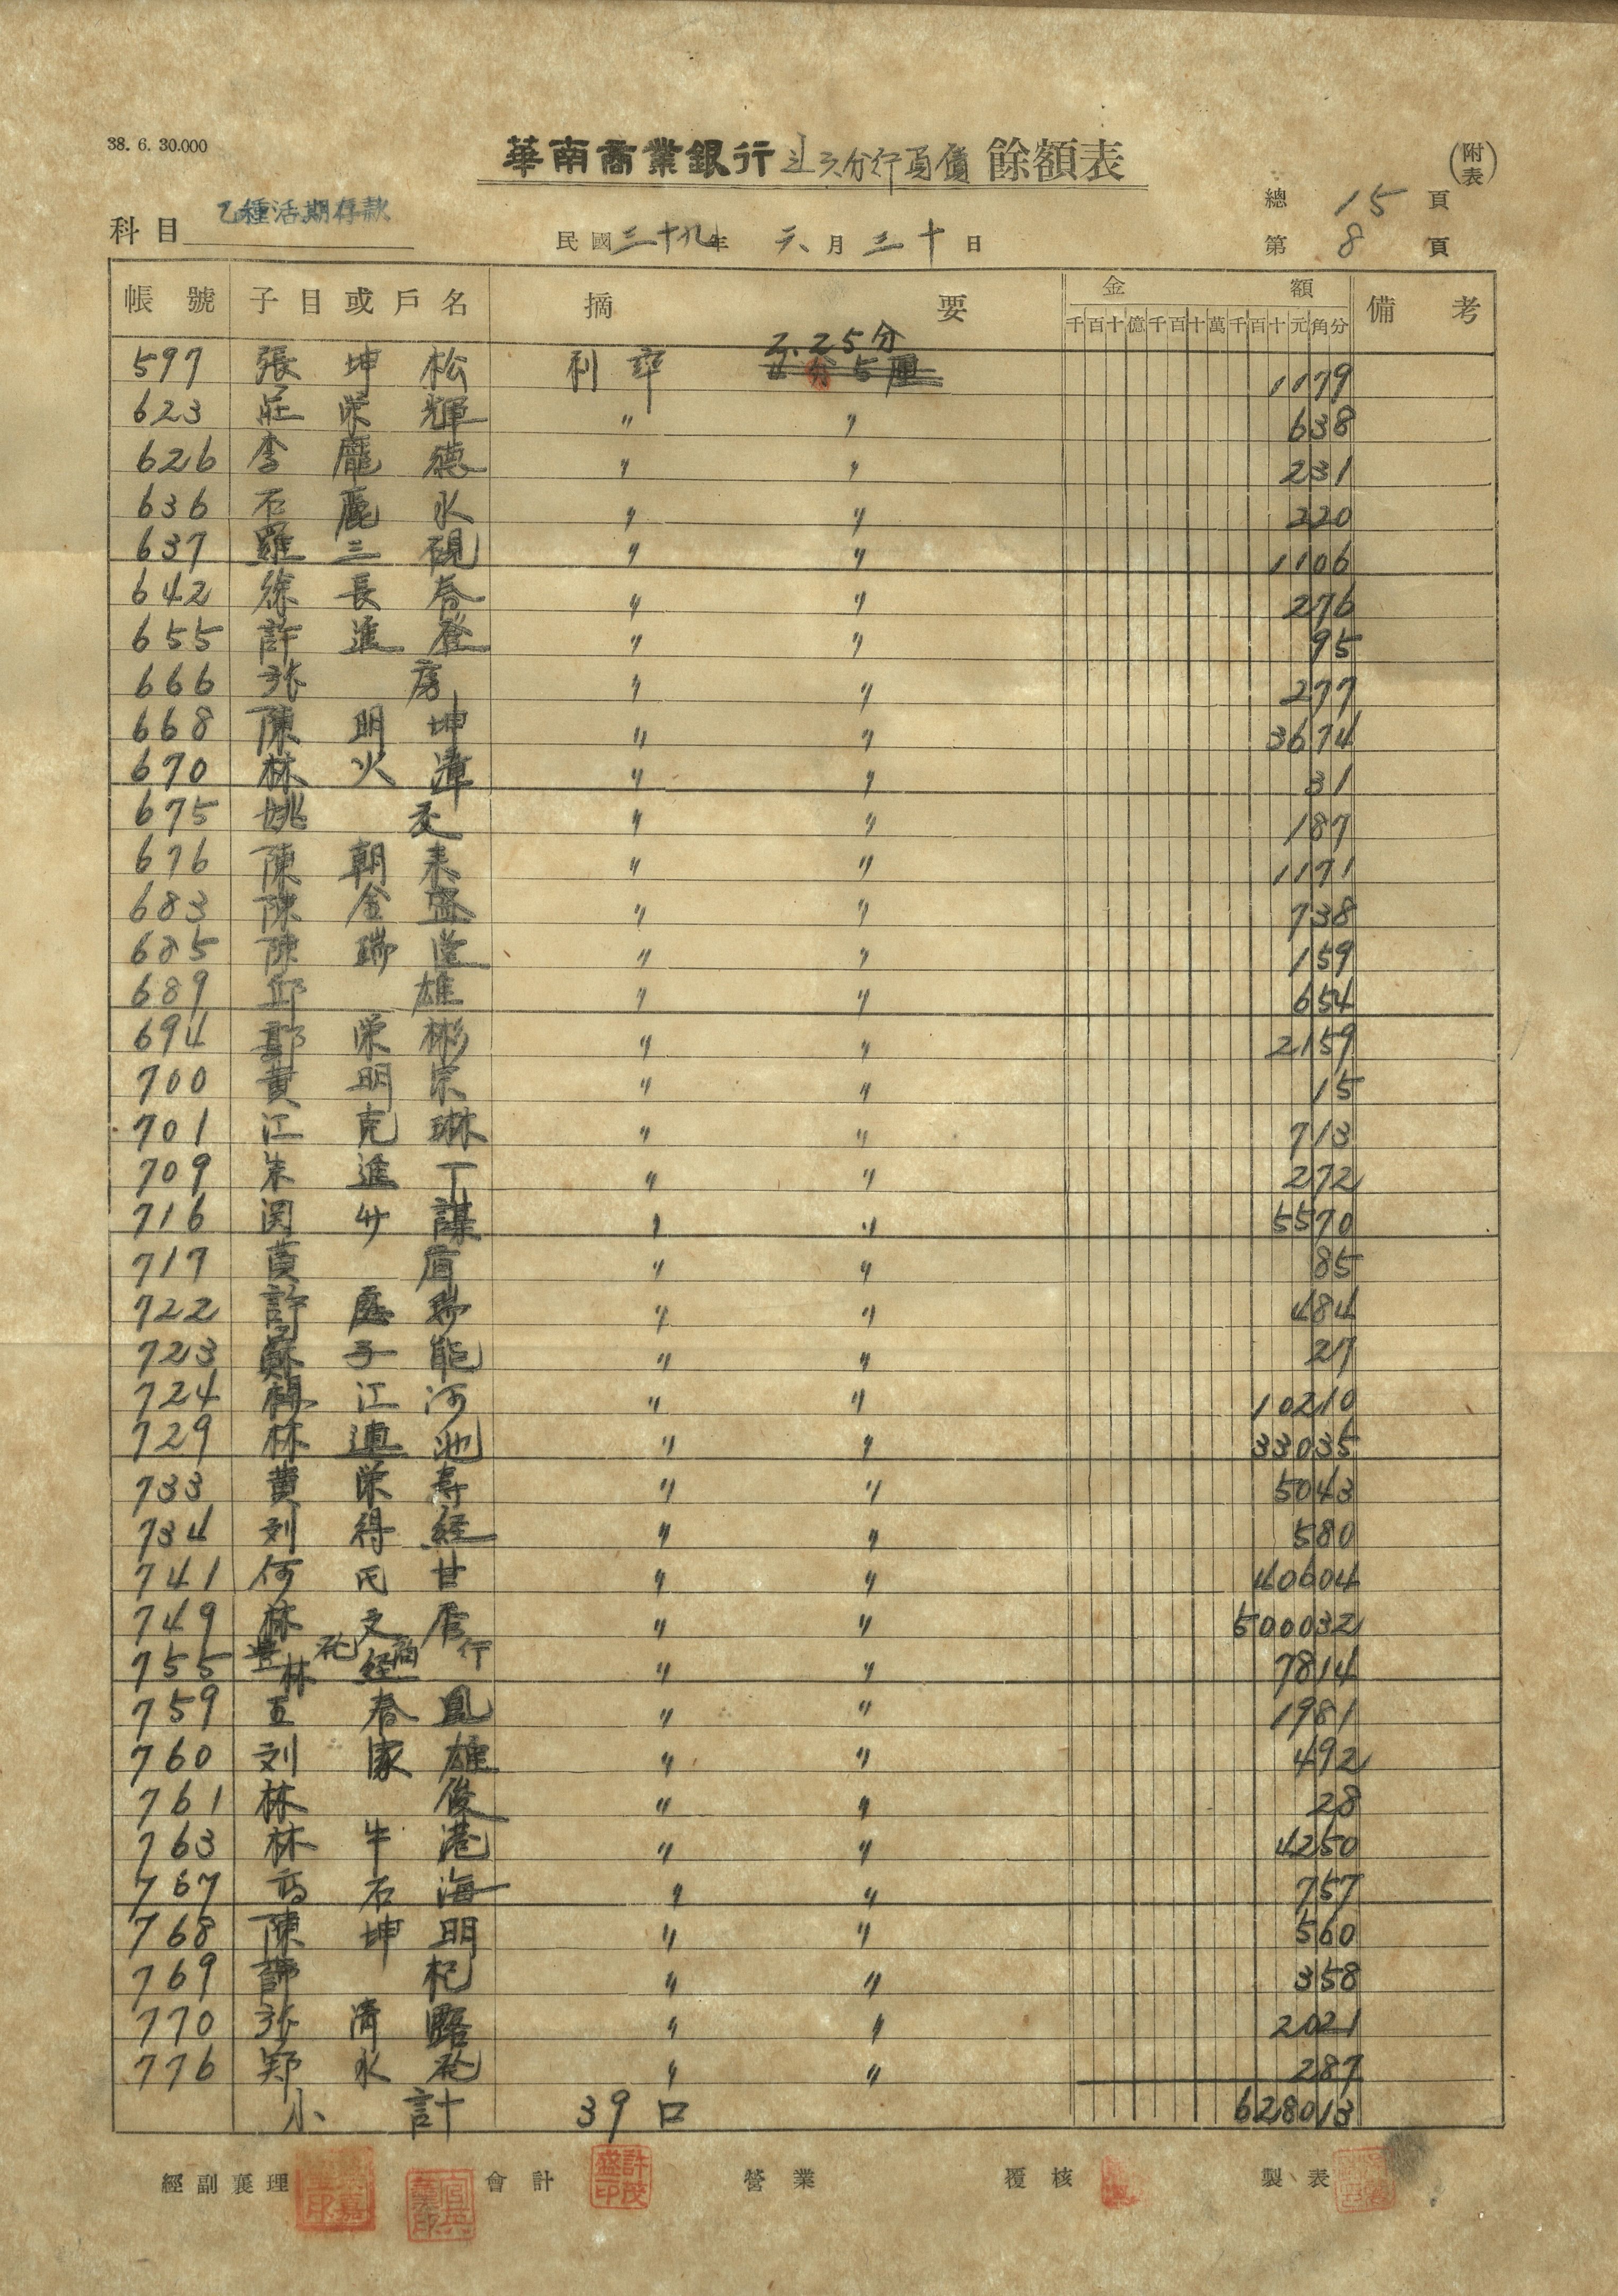 38. 6. 30.000
華南商業銀行斗六分行負債餘額表
(附表)
總 15 頁
科目 乙種活期存款
民國三十九年 六月三十日
第 8 頁
帳號 子目或戶名 摘要 金額 備考
千百十億千百十萬千百十元角分
2.25分
597 張坤松 利率 分5厘 1179
623 莊榮輝 〃 〃 638
626 李龐德 〃 〃 231
636 石麗水 〃 〃 220
637 羅三硯 〃 〃 1106
642 徐長春 〃 〃 276
655 許進發 〃 〃 95
666 張房 〃 〃 277
668 陳明坤 〃 〃 3674
670 林火漳 〃 〃 31
675 姚交 〃 〃 187
676 陳朝来 〃 〃 1171
683 陳金盛 〃 〃 738
685 陳瑞 〃 〃 159
689 邱雄 〃 〃 654
694 鄭榮彬 〃 〃 2159
700 黃明宗 〃 〃 15
701 江克琳 〃 〃 713
709 朱進丁 〃 〃 272
716 謀 〃 〃 5570
717 黃眉 〃 〃 85
722 許瑞 〃 〃 484
723 蘇子能 〃 〃 27
724 江河 〃 〃 10210
729 林連池 〃 〃 33035
733 黃栄寿 〃 〃 5043
734 刘得経 〃 〃 580
741 何氏甘 〃 〃 40604
749 林文 〃 〃 500032
755 豊花商行 林経 〃 〃 7814
759 王春鳳 〃 〃 1981
760 刘家雄 〃 〃 492
761 林俊 〃 〃 28
763 林牛港 〃 〃 4250
767 高石海 〃 〃 757
768 陳坤明 〃 〃 560
769 許杞 〃 〃 358
770 張清路 〃 〃 2021
776 郑水花 〃 〃 287
小計 39口 628013
經副襄理 會計 營業 覆核 製表
許茂盛印